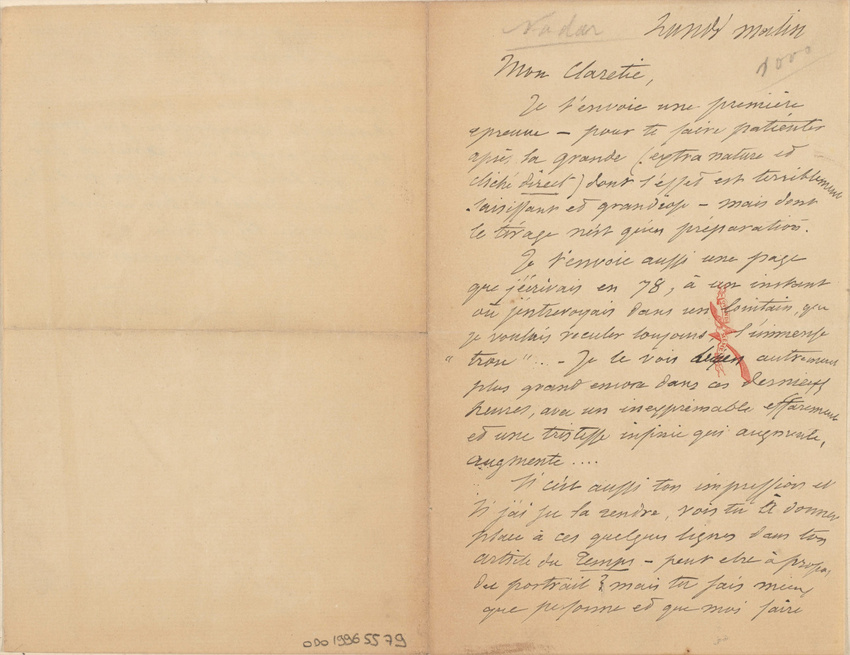 Nadar
Lundi matin
1000
Mon Claretie,
Je t'envoie une première
epreuve – pour te faire patienter
après la grande (extra nature et
cliché direct) dont l'effet est terriblement
saisissant et grandiose – mais dont
le tirage n'est qu'en préparation.
Je t'envoie aussi une page
que j'écrivais en 78, à un instant
où j'entrevoyais dans un lointain, que
je voulais reculer toujours, l'immense
"trou" .. – Je le vois autrement
plus grand encore dans ces dernières
heures, avec un inexprimable effarement
et une tristesse infinie qui augmente,
augmente....
Si c'est aussi ton impression et
si j'ai su la rendre, vois tu à donner
place à ces quelques lignes dans ton
article du Temps – peut etre à propos
du portrait? mais tu sais mieux
que personne et que moi faire
ODO 1996 55 79